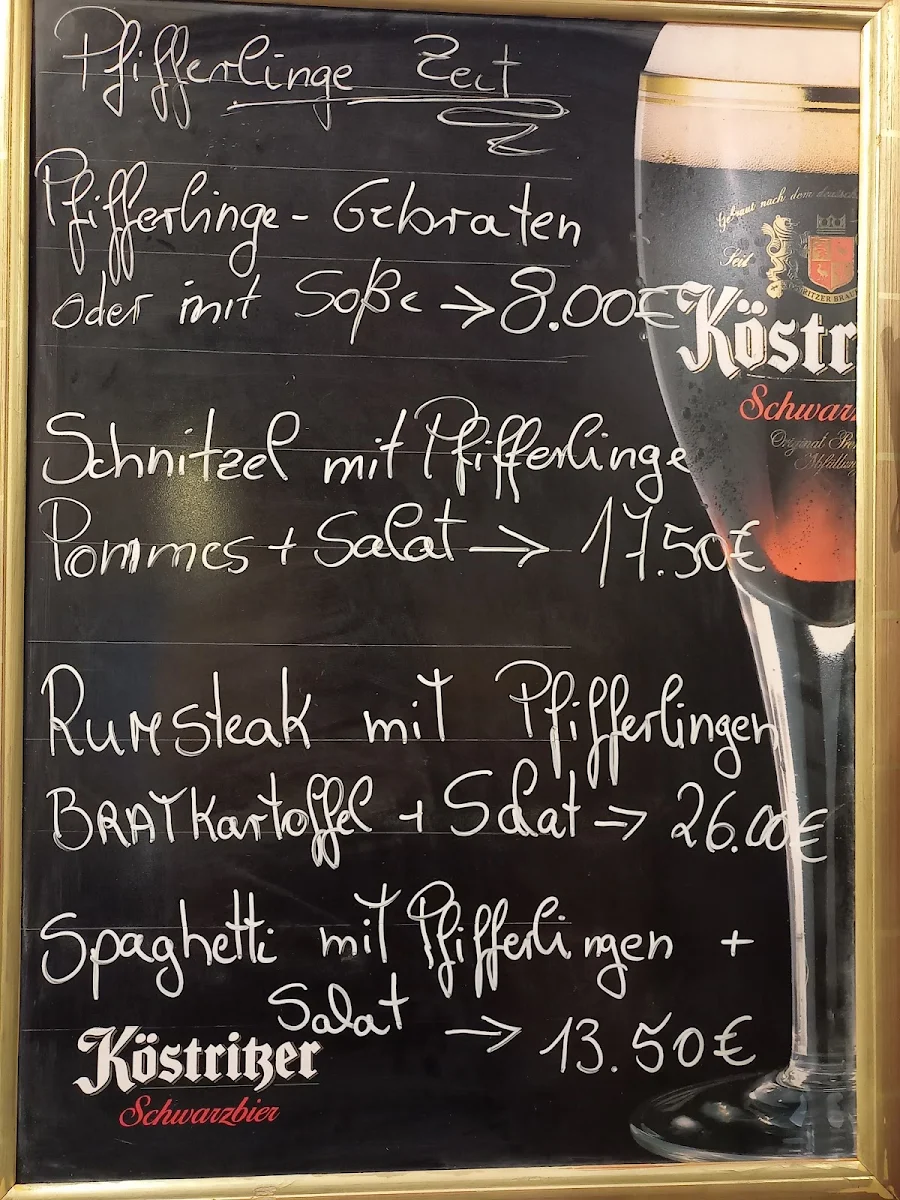 Pfifferlinge Zeit
Pfifferlinge - Gebraten
oder mit Soße → 8.00€
Schnitzel mit Pfifferlinge
Pommes + Salat → 17.50€
Rumsteak mit Pfifferlingen
BRATKartoffel + Salat → 26.00€
Spaghetti mit Pfifferlingen +
Salat → 13.50€
Köstritzer
Schwarzbier
Gebraut nach dem deutsch
Seit
RITZER BRAU
Köstr
Schwarz
Original Pre
Abfüllung